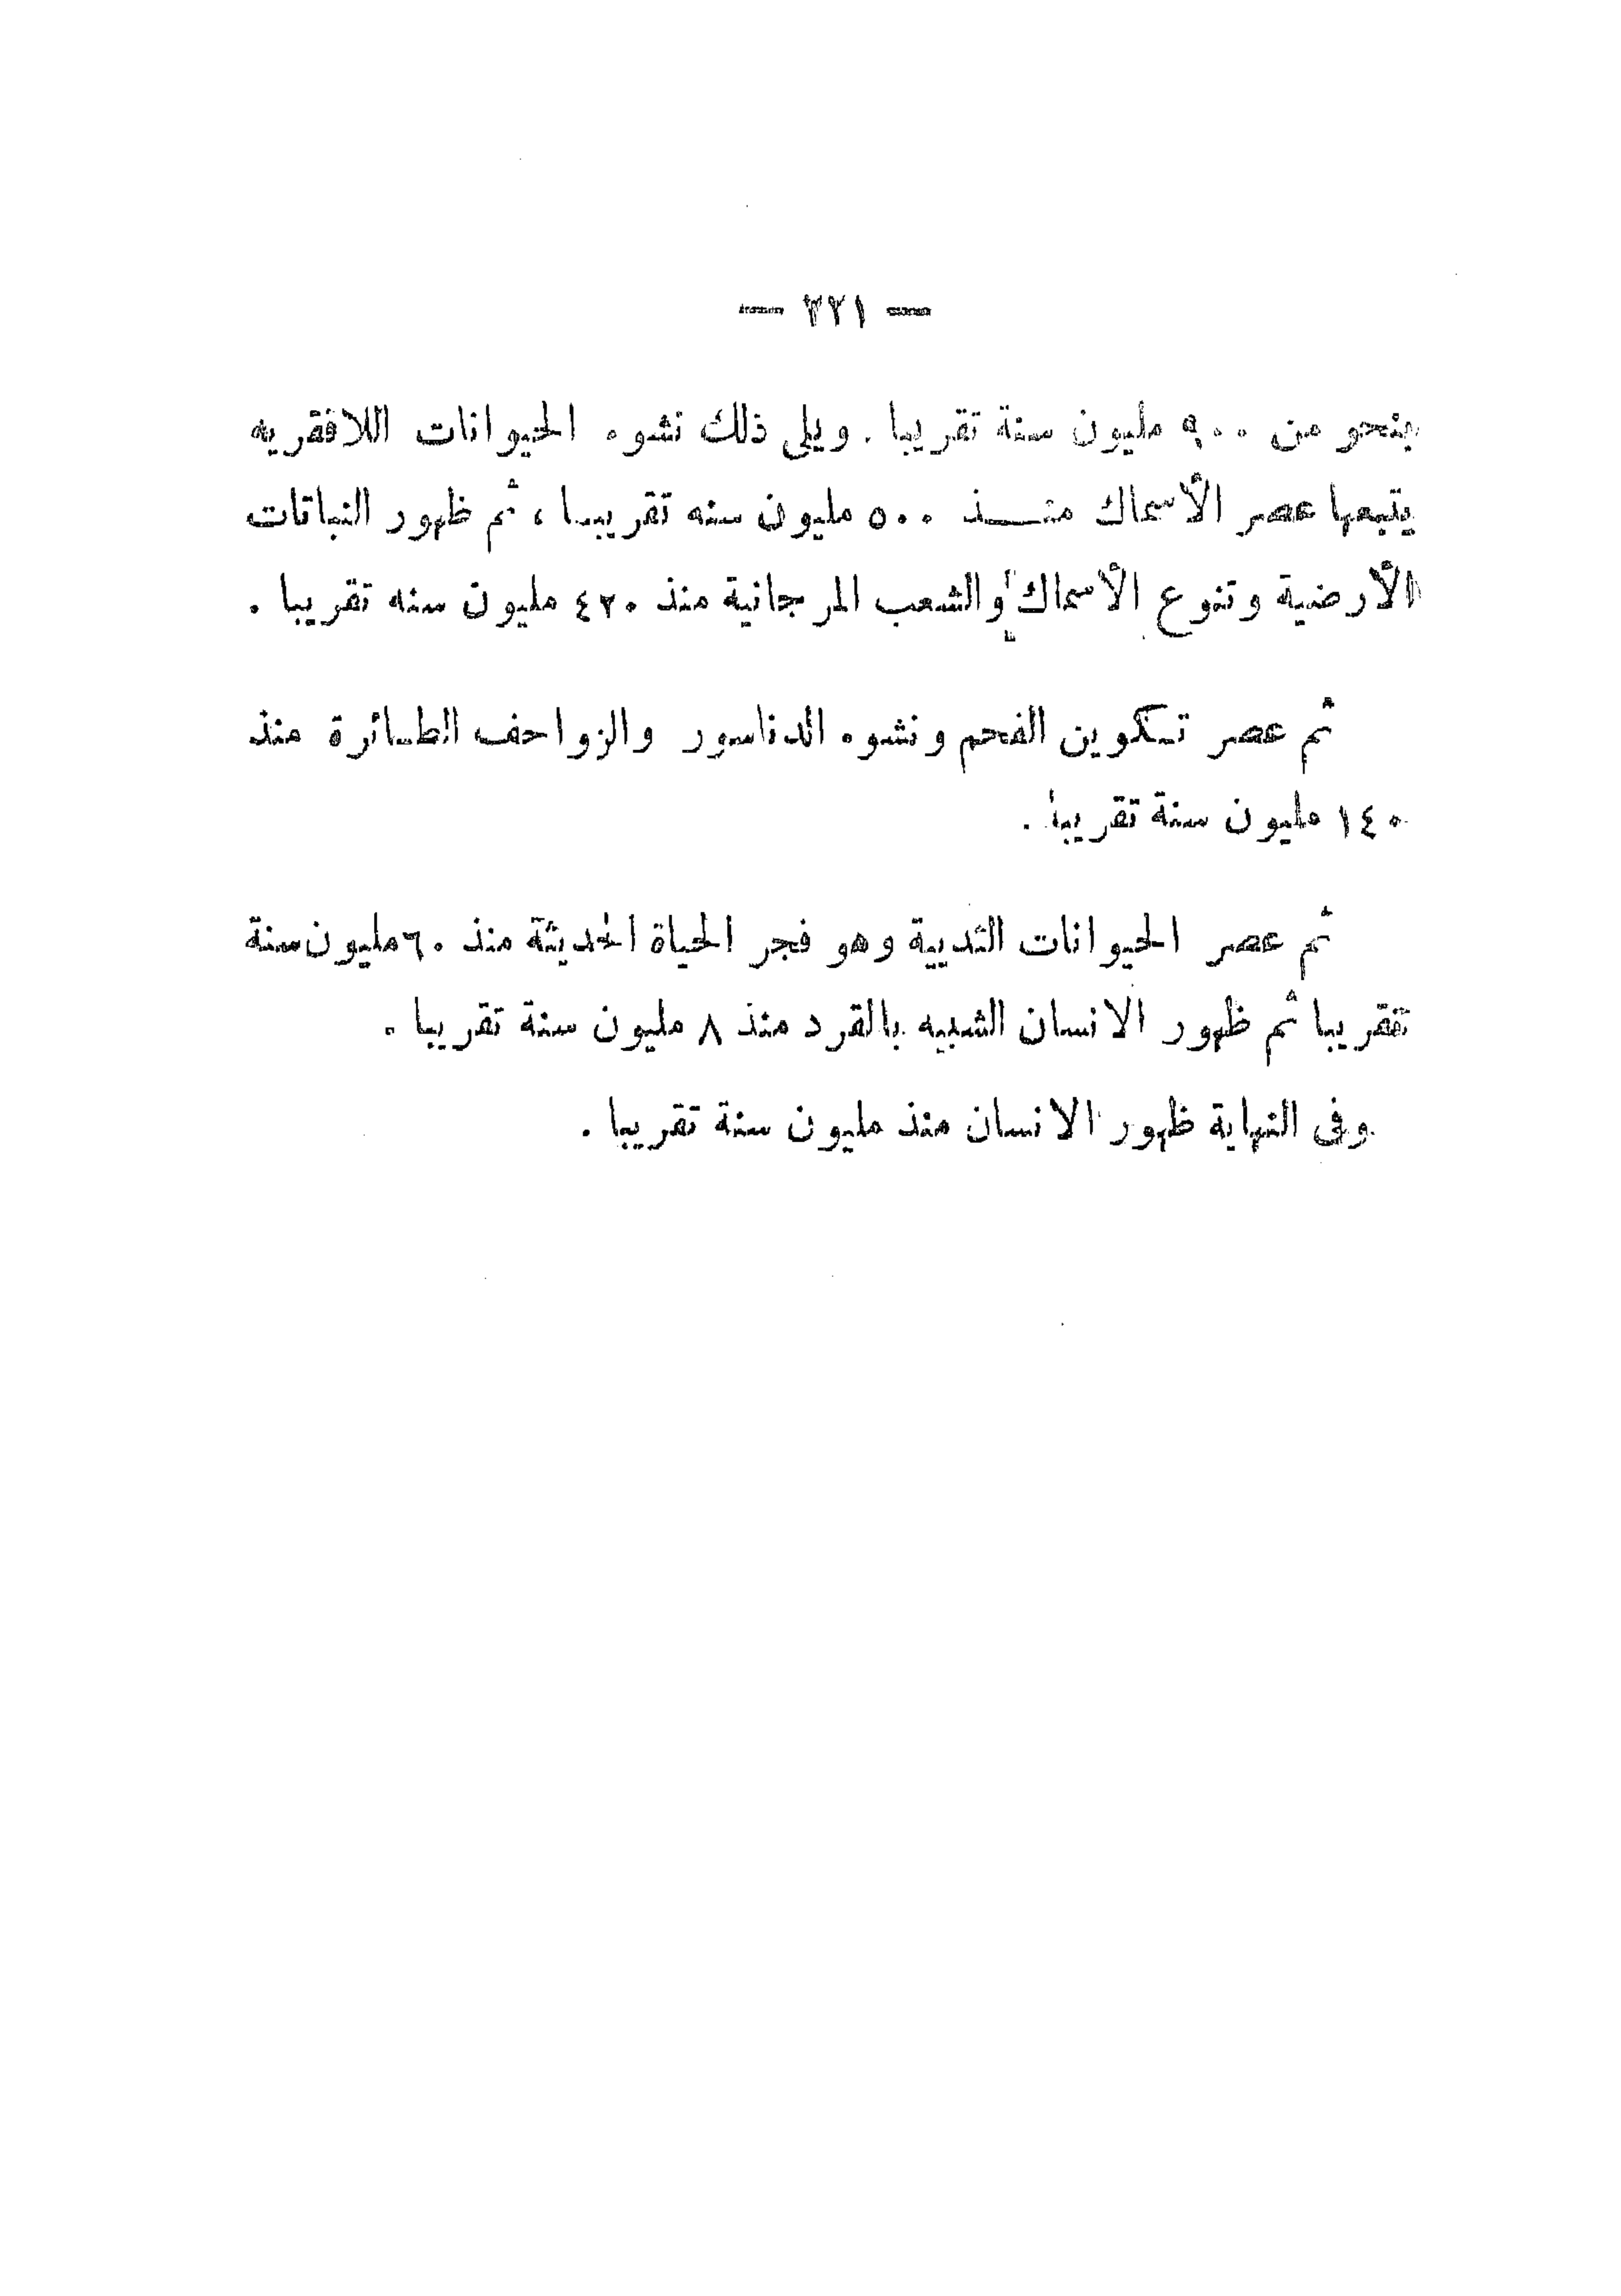 — ٣٢١ —
بنحو من ٩٠٠ مليون سنة تقريبا . ويلى ذلك نشوء الحيوانات اللافقريه
يتبعها عصر الأسماك منـــذ ٥٠٠ مليون سنه تقريبـا ، ثم ظهور النباتات
الأرضية وتنوع الأسماك والشعب المرجانية منذ ٤٢٠ مليون سنه تقريبا .
ثم عصر تـكوين الفحم ونشوء الدناسور والزواحف الطـائرة منذ
١٤٠ مليون سنة تقريبا .
ثم عصر الحيوانات الثديية وهو فجر الحياة الحديثة منذ ٦٠ مليون سنة
تقريبا ثم ظهور الانسان الشبيه بالقرد منذ ٨ مليون سنة تقريبا .
وفى النهاية ظهور الانسان منذ مليون سنة تقريبا .